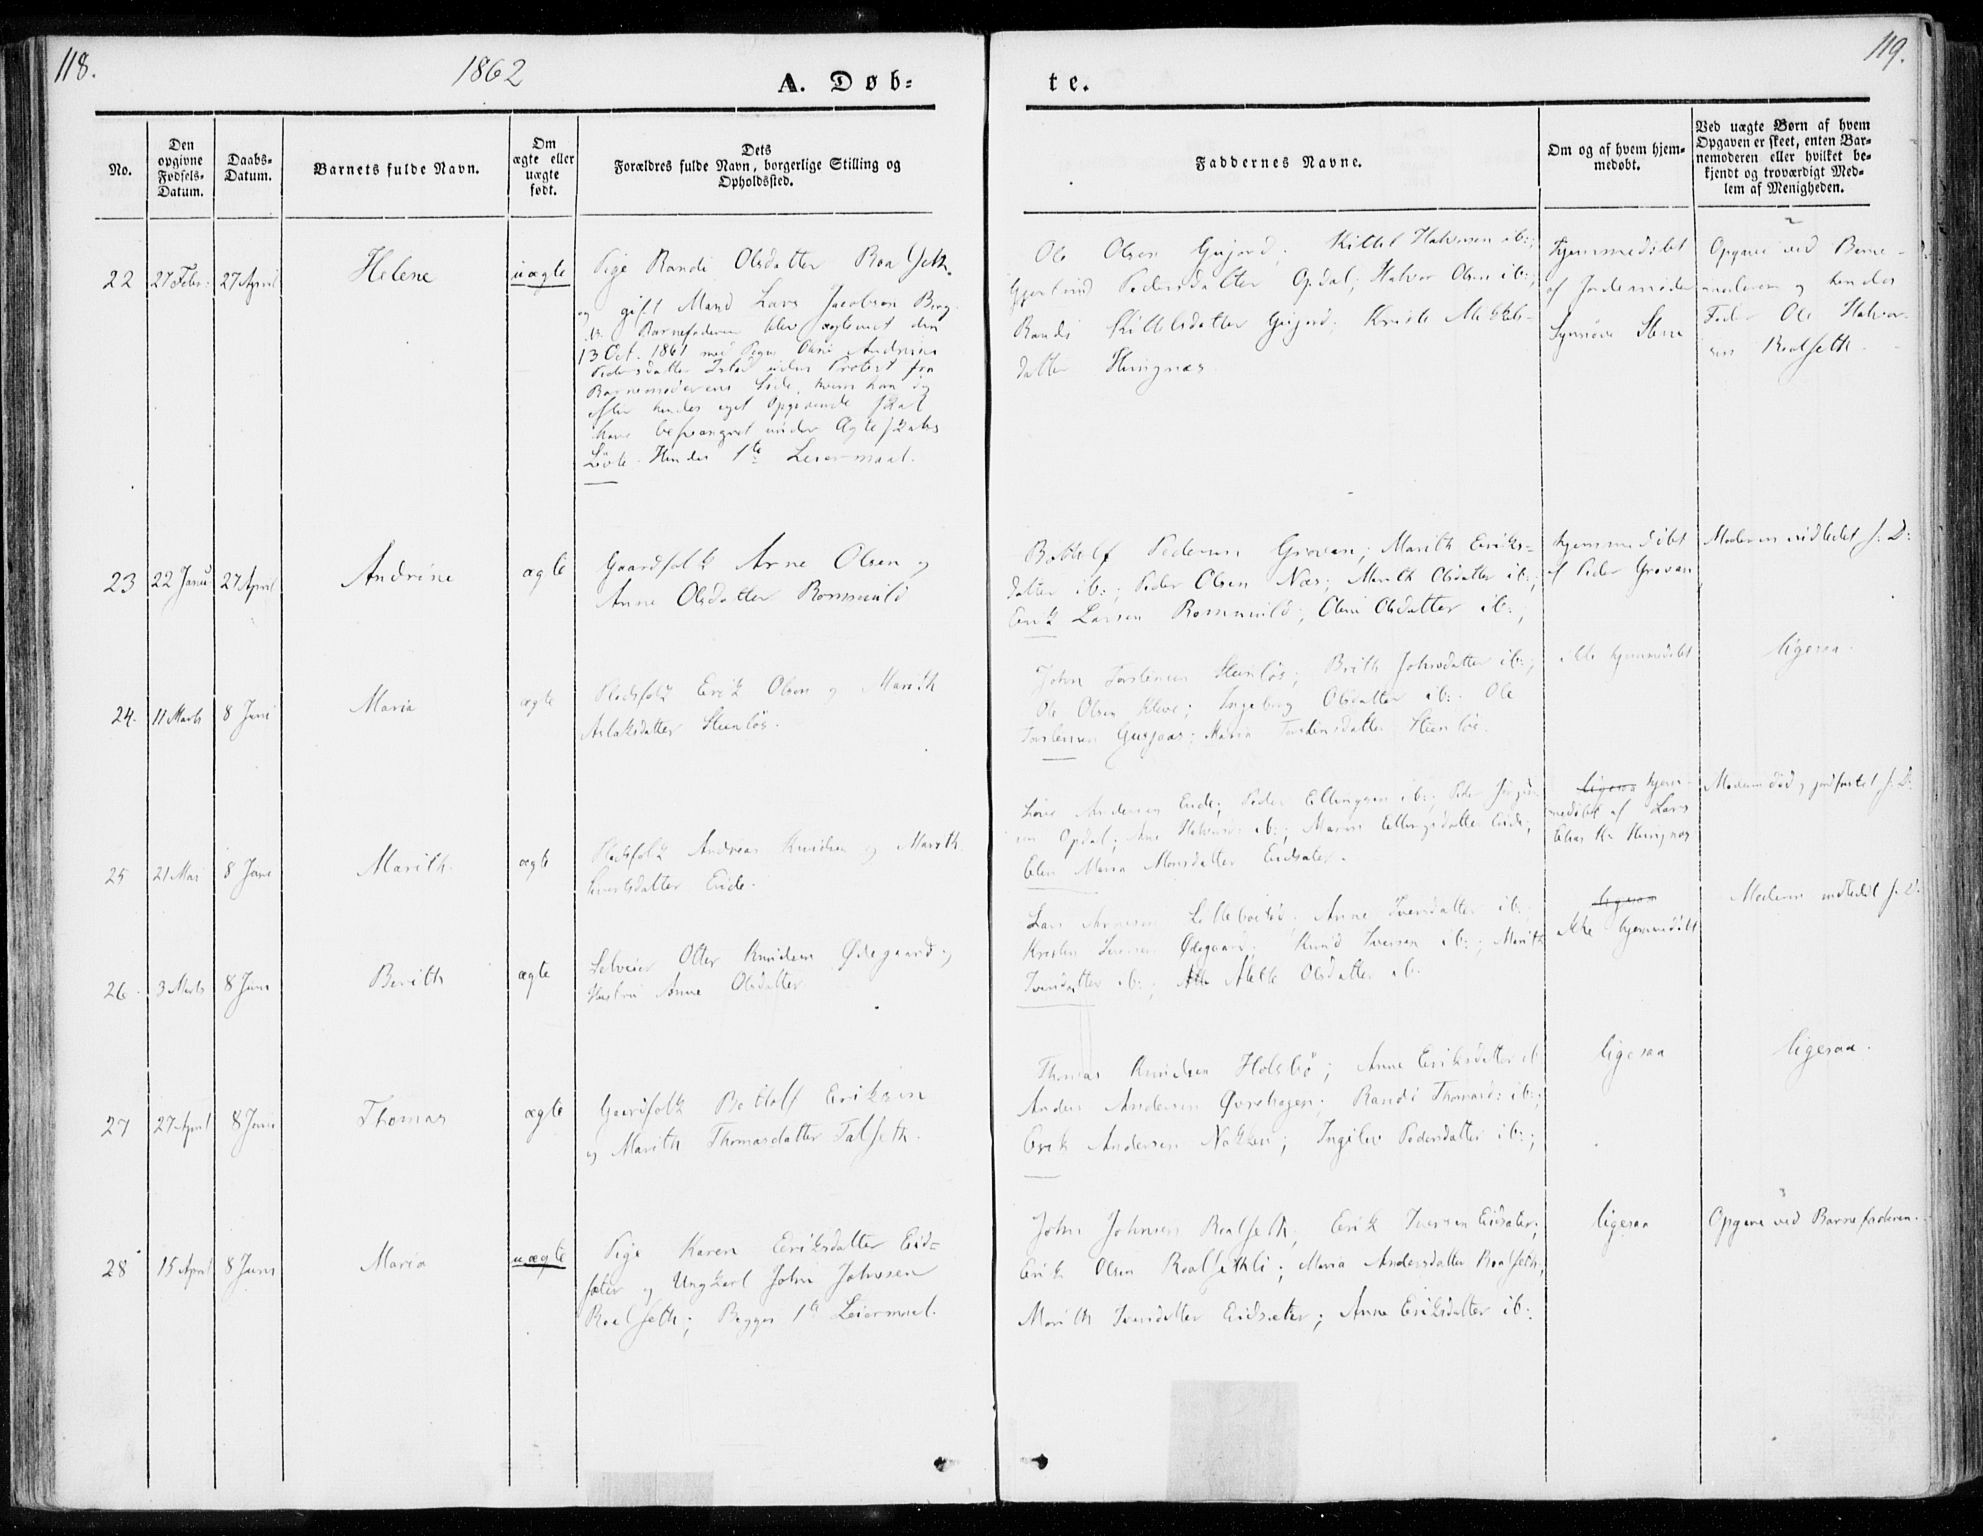 118.
1862
A. Døb-
te.
119.
No.
Den opgivne Fødsels-Datum.
Daabs-Datum.
Barnets fulde Navn.
Om ægte eller uægte født.
Dets Forældres fulde Navn, borgerlige Stilling og Opholdssted.
Faddernes Navne.
Om og af hvem hjem-medøbt.
Ved uægte Børn af hvem Opgaven er skeet, enten Bar-nemoderen eller hvilket be-kjendt og troværdigt Med-lem af Menigheden.
22
27 Febr:
27 April
Helene
uægte
Pige Randi Olsdatter Roalseth
og gift Mand Lars Jacobsen
Barnefaderen blev ægteviet den
13 Oct. 1861 med Pigen Andrine
Pedersdatter uden Protest fra
Barnemoderens Side, hvem han dog
efter hendes eget Opgivende skal
have besvangret under Ægteskabs
Løvte. Hendes 1te Leiermaal.
Ole Olsen Gujord; Killel Halvorsen ib:;
Pedersdatter Opdal; Halvor Olsen ib:;
Randi Killelsdatter Gujord; Mikkels-
datter Hungnæs
hjemmedøbt
af Jordemoder
Synnøve Stene
Opgave ved Barne-
moderen og hendes
Fader Ole Halvor-
sen Roalseth.
23
22 Janu
27 April
Andrine
ægte
Gaardfolk Arne Olsen og
Anne Olsdatter Rommuld
Bottolf Pedersen Grovan; Marith Eriks-
datter ib:; Peder Olsen Næs; Marith Olsdatter ib:;
Erik Larsen Rommuld; Oline Olsdatter ib:;
hjemmedøbt
af Peder Grovan
Moderen indledet s. D:
24.
11 Marts
8 Juni
Maria
ægte
Pladsfolk Erik Olsen og Marith
Aslaksdatter Steenløs.
John Torstensen Steenløs; Brith Johnsdatter ib:;
Ole Olsen Kleve; Ingeborg Olsdatter ib:. Ole
Torstensen Gusjaas; Maria Torstensdatter Steenløs.
ikke hjemmedøbt
ligesaa.
25
21 Mai
8 Juni
Marith.
ægte
Pladsfolk Andreas Knudsen og Marith
datter Eide.
Andersen Eide; Peder Ellingsen ib:; Peder
Opdal; Ane Halvorsd: ib:; Maren Ellingsdatter Eide;
Elen Maria Monsdatter Eidsæter.
ligesaa hjem-
medøbt af Lars
Hungnæs
Moderen død og jordfæstet s. D:
26.
3 Marts
8 Juni
Berith
ægte
Selveier Otter Knudsen Ødegaard og
Hustru Anne Olsdatter
Lars Arnesen Lillebostad; Anne Iversdatter ib:;
Kristen Iversen Ødegaard; Knud Iversen ib:; Marith
Iversdatter ib:; Mette Olsdatter ib:
ligesaa
ikke hjemmedøbt
Moderen indledet s. D.
27
27 April
8 Juni
Thomas
ægte
Gaardfolk Bottolf Eriksen
og Marith Thomasdatter Talseth.
Thomas Knudsen Holsbø; Anne Eriksdatter ib
Anders Andersen Øvrehagen; Randi Thomasd: ib:;
Erik Andersen Nakken; Ingelev Pedersdatter ib:;
ligesaa
ligesaa.
28
15 April
8 Juni
Maria
uægte
Pige Karen Eriksdatter Eid-
sæter og Ungkarl John Johnsen
Roalseth; Begges 1te Leiermaal.
John Johnsen Roalseth; Erik Iversen Eidsæter;
Erik Olsen Roalsethli; Maria Andersdatter Roalseth;
Marith Iversdatter Eidsæter; Anne Eriksdatter ib:
ligesaa
Opgave ved Barnefaderen.